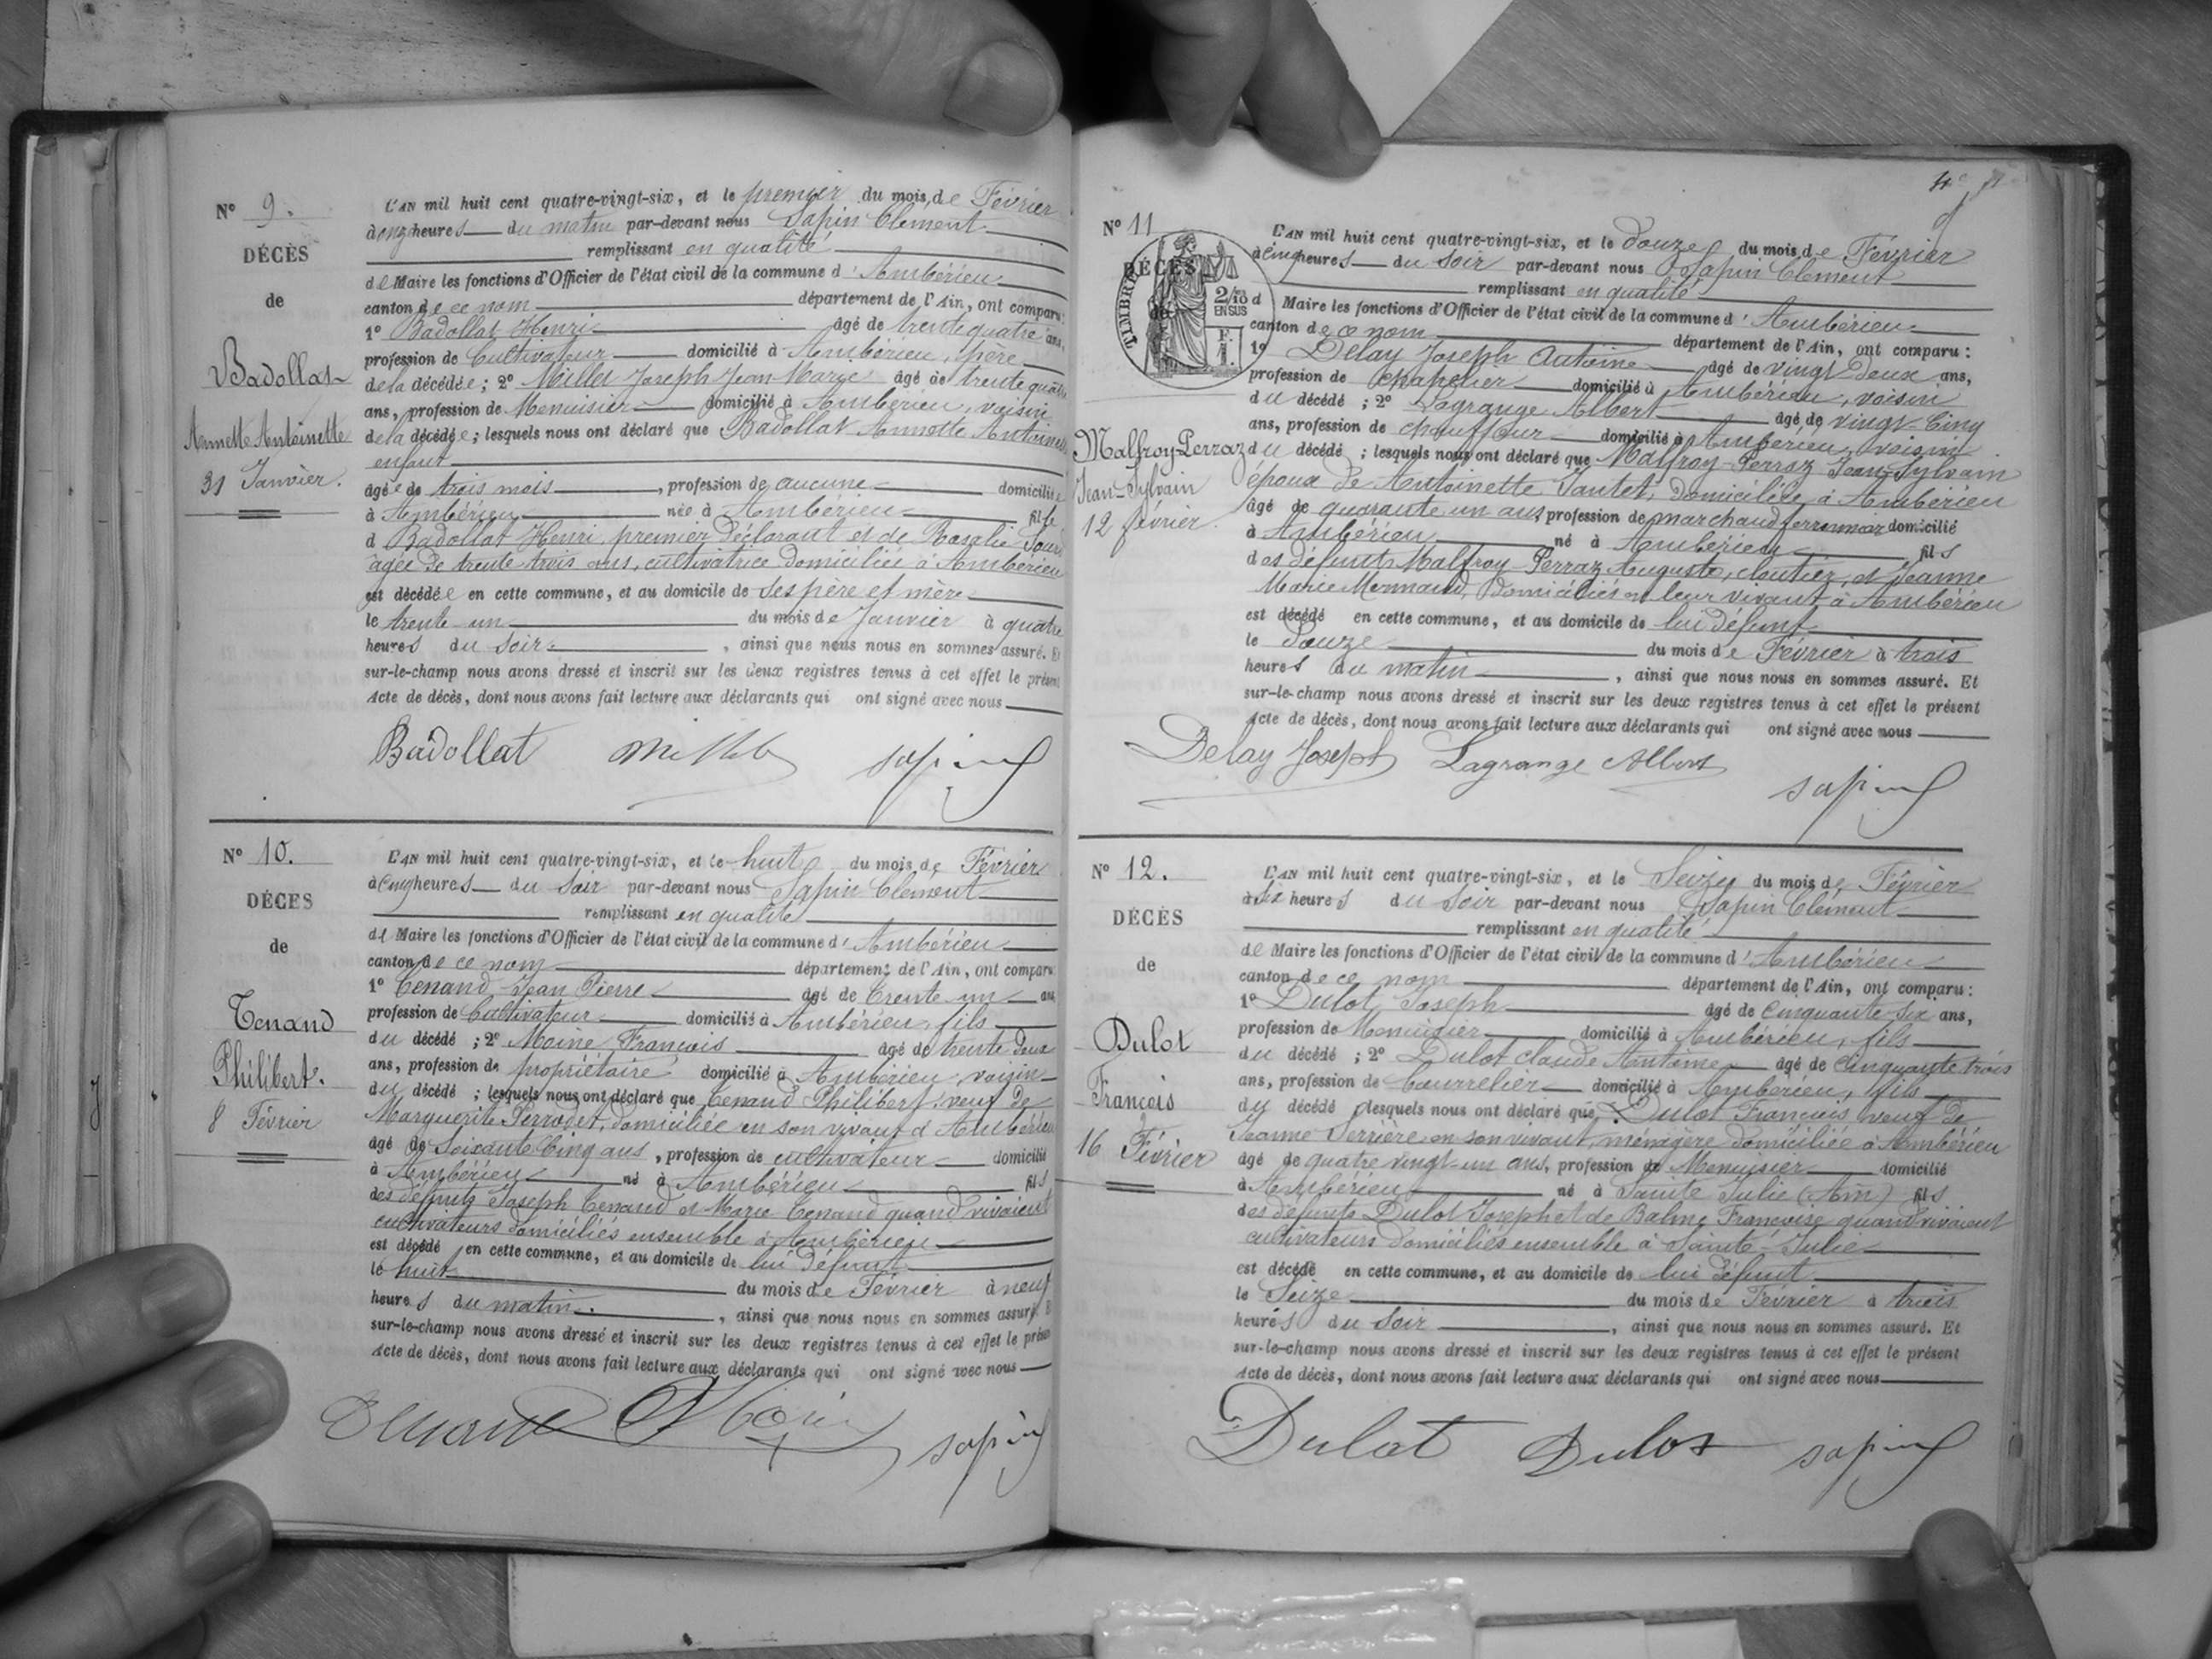 N° 9.
DÉCÈS
de
Badollat
Annette Antoinette
31 Janvier.
L'AN mil huit cent quatre-vingt-six, et le premier du mois de Février
à onze heures du matin par-devant nous Sapin Clément
remplissant en qualité
de Maire les fonctions d'Officier de l'état civil de la commune d'Ambérieu
canton de ce nom département de l'Ain, ont comparu:
1° Badollat Henri âgé de trente quatre ans,
profession de Cultivateur domicilié à Ambérieu, père
de la décédée; 2° Millet Joseph Jean Marie âgé de trente quatre
ans, profession de Menuisier domicilié à Ambérieu, voisin
de la décédée; lesquels nous ont déclaré que Badollat Annette Antoinette
enfant
âgée de trois mois, profession de aucune domiciliée
à Ambérieu née à Ambérieu fille
d Badollat Henri, premier déclarant et de Rosalie
âgée de trente trois ans, cultivatrice domiciliée à Ambérieu
est décédée en cette commune, et au domicile de ses père et mère
le trente un du mois de Janvier à quatre
heures du soir, ainsi que nous nous en sommes assuré. Et
sur-le-champ nous avons dressé et inscrit sur les deux registres tenus à cet effet le présent
Acte de décès, dont nous avons fait lecture aux déclarants qui ont signé avec nous
Badollat Millet Sapin
N° 10.
DÉCÈS
de
Tenand
Philibert.
8 Février
L'AN mil huit cent quatre-vingt-six, et le huit du mois de Février
à cinq heures du soir par-devant nous Sapin Clément
remplissant en qualité
de Maire les fonctions d'Officier de l'état civil de la commune d'Ambérieu
canton de ce nom département de l'Ain, ont comparu
1° Tenand Jean Pierre âgé de trente un ans
profession de Cultivateur domicilié à Ambérieu, fils
du décédé; 2° Moine François âgé de trente deux
ans, profession de propriétaire domicilié à Ambérieu, voisin
du décédé; lesquels nous ont déclaré que Tenand Philibert, veuf de
Marguerite Perrodet, domiciliée en son vivant à Ambérieu
âgé de Soixante Cinq ans, profession de cultivateur domicilié
à Ambérieu né à Ambérieu fils
des défunts Joseph Tenand et Marie Tenand quand vivaient
cultivateurs domiciliés ensemble à Ambérieu
est décédé en cette commune, et au domicile de lui défunt
le huit du mois de Février à neuf
heures du matin, ainsi que nous nous en sommes assuré. E
sur-le-champ nous avons dressé et inscrit sur les deux registres tenus à cet effet le présen
Acte de décès, dont nous avons fait lecture aux déclarants qui ont signé avec nous
Tenand Moine Sapin
N° 11
DÉCÈS
de
TIMBRE
2/10 EN SUS
Malfroy-Perraz
Jean-Sylvain
12 février.
L'AN mil huit cent quatre-vingt-six, et le douze du mois de Février
à cinq heures du soir par-devant nous Sapin Clément
remplissant en qualité
d Maire les fonctions d'Officier de l'état civil de la commune d'Ambérieu
canton de ce nom département de l'Ain, ont comparu:
1° Delay Joseph Antoine âgé de vingt-deux ans,
profession de Chapelier domicilié à Ambérieu, voisin
du décédé; 2° Lagrange Albert âgé de vingt-cinq
ans, profession de chauffeur domicilié à Ambérieu, voisin
du décédé; lesquels nous ont déclaré que Malfroy-Perraz Jean-Sylvain
époux de Antoinette Tantet, domiciliée à Ambérieu
âgé de quarante un ans, profession de marchand domicilié
à Ambérieu né à Ambérieu fils
des défunts Malfroy-Perraz Auguste, cloutier, et Jeanne
Marie Monnand, domiciliés en leur vivant à Ambérieu
est décédé en cette commune, et au domicile de lui défunt
le Douze du mois de Février à trois
heures du matin, ainsi que nous nous en sommes assuré. Et
sur-le-champ nous avons dressé et inscrit sur les deux registres tenus à cet effet le présent
Acte de décès, dont nous avons fait lecture aux déclarants qui ont signé avec nous
Delay Joseph Lagrange Albert Sapin
N° 12.
DÉCÈS
de
Dulot
François
16 Février
L'AN mil huit cent quatre-vingt-six, et le Seize du mois de Février
à six heures du soir par-devant nous Sapin Clément
remplissant en qualité
de Maire les fonctions d'Officier de l'état civil de la commune d'Ambérieu
canton de ce nom département de l'Ain, ont comparu:
1° Dulot Joseph âgé de Cinquante-six ans,
profession de Menuisier domicilié à Ambérieu, fils
du décédé; 2° Dulot Claude Antoine âgé de Cinquante trois
ans, profession de Bourrelier domicilié à Ambérieu, fils
du décédé lesquels nous ont déclaré que Dulot François, veuf de
Jeanne Serrière en son vivant ménagère domiciliée à Ambérieu
âgé de quatre vingt-un ans, profession de Menuisier domicilié
à Ambérieu né à Sainte Julie (Ain) fils
des défunts Dulot Joseph et de Balme Françoise quand vivaient
cultivateurs domiciliés ensemble à Sainte-Julie
est décédé en cette commune, et au domicile de lui défunt
le Seize du mois de Février à trois
heures du soir, ainsi que nous nous en sommes assuré. Et
sur-le-champ nous avons dressé et inscrit sur les deux registres tenus à cet effet le présent
Acte de décès, dont nous avons fait lecture aux déclarants qui ont signé avec nous
Dulot Dulot Sapin